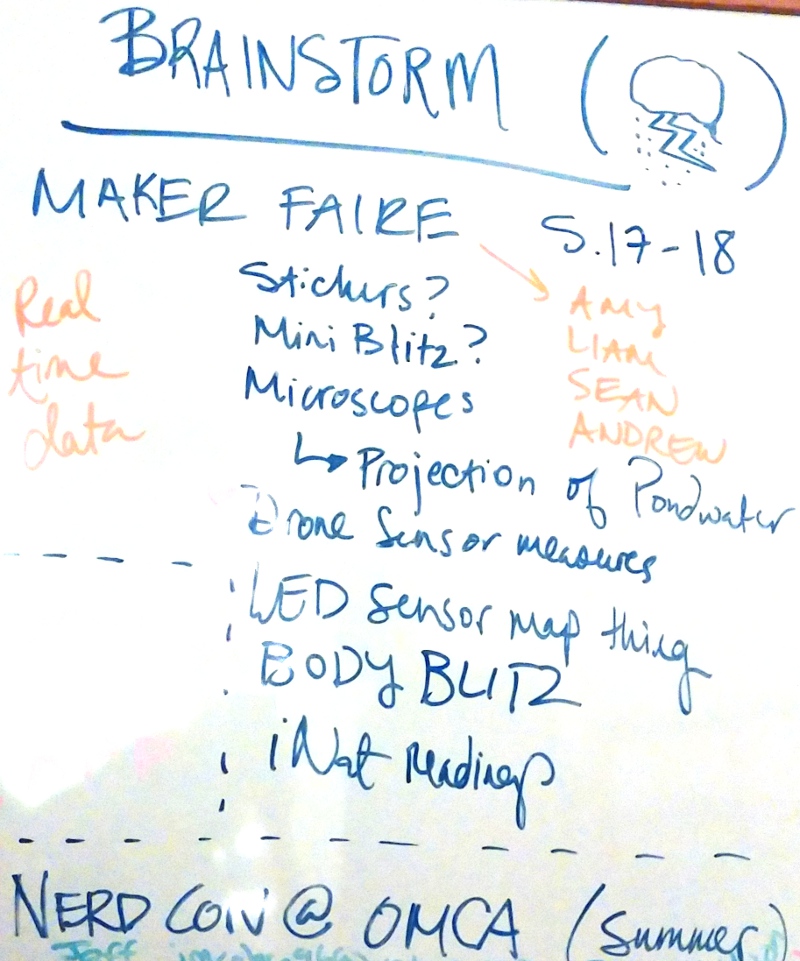 BRAINSTORM ( )
MAKER FAIRE 5.17-18
Real
time
data
Stickers?
Mini Blitz?
Microscopes
↳ Projection of Pondwater
Drone Sensor measures
LED Sensor map thing
BODY BLITZ
iNat readings
AMY
LIAM
SEAN
ANDREW
NERD CON @ OMCA (Summer)
Jeff